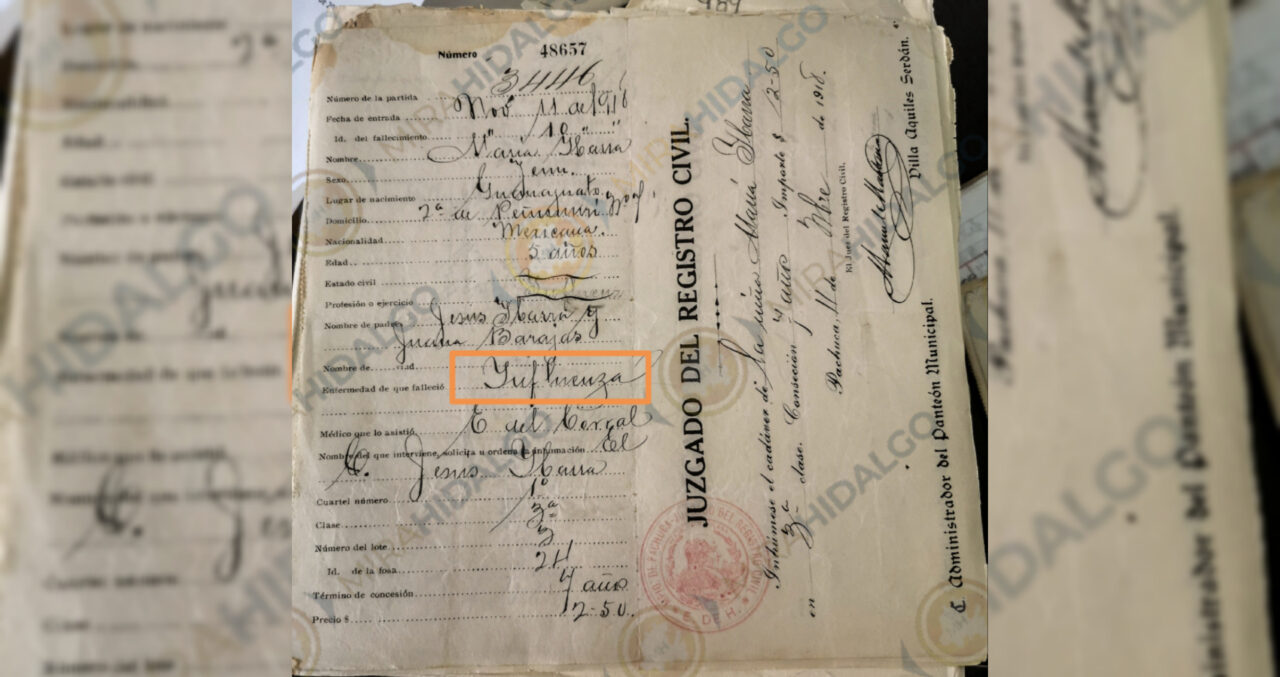 989
Número 48657
Número de la partida 34446
Fecha de entrada Nov 11 del 1918
Id. del fallecimiento " 10 " "
Nombre María Ibarra
Sexo Fem.
Lugar de nacimiento Guanajuato
Domicilio 2ª de
Nacionalidad Mexicana.
Edad 5 años
Estado civil
Profesión o ejercicio
Nombre de padres Jesús Ibarra y
Juana Barajas
Nombre de
Enfermedad de que falleció Influenza
Médico que lo asistió E del Corral
Nombre del que interviene, solicita u ordena la inhumación El
C. Jesús Ibarra
Cuartel número 1º
Clase 3ª
Número del lote 3
Id. de la fosa 21
Término de concesión 7 años
Precio $ 2-50.
JUZGADO DEL REGISTRO CIVIL.
Inhúmese el cadáver de la niña María Ibarra
en 3ª clase. Conseción 7 años Importe $ 2-50
Pachuca, 11 de 9bre de 1918.
El Juez del Registro Civil,
C. Administrador del Panteón Municipal.
Villa Aquiles Serdán.
MIRAHIDALGO